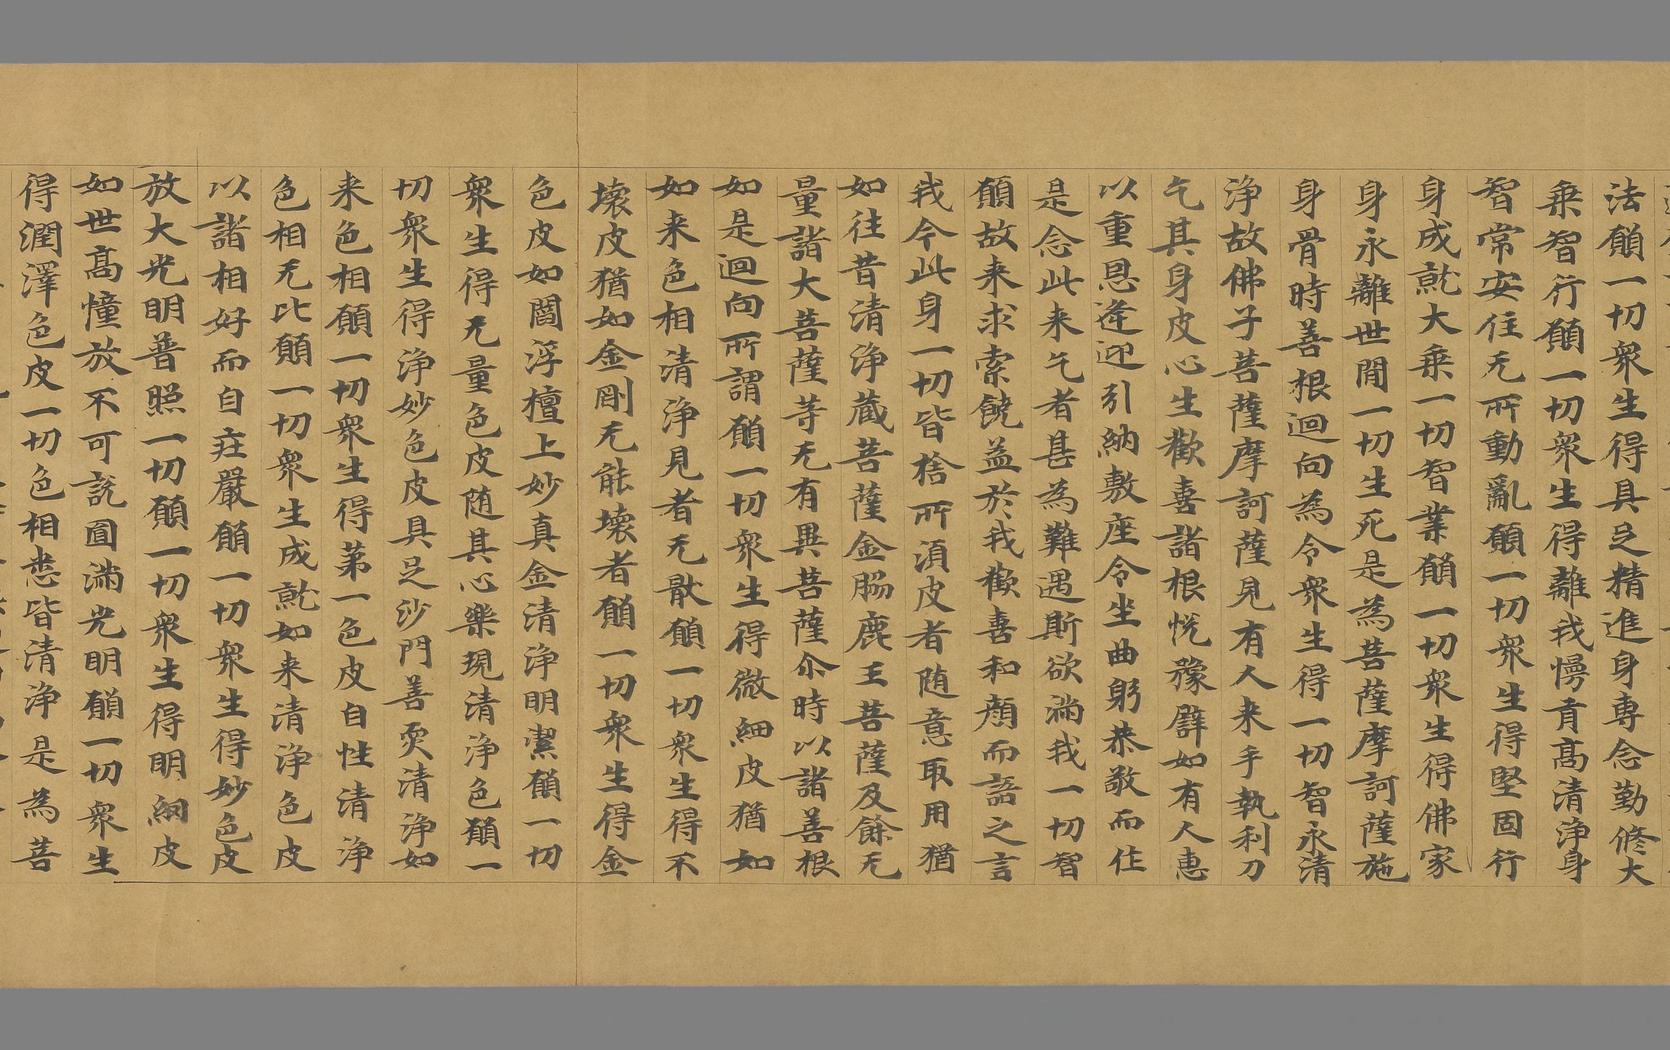 法願一切衆生得具足精進身專念勤修大
乗智行願一切衆生得離我慢貢髙清淨身
智常安住无所動亂願一切衆生得堅固行
身成就大乗一切智業願一切衆生得佛家
身永離世間一切生死是為菩薩摩訶薩施
身骨時善根迴向為令衆生得一切智永清
淨故佛子菩薩摩訶薩見有人来手執利刀
乞其身皮心生歡喜諸根悦豫譬如有人恵
以重恩逢迎引納敷座令坐曲躬恭敬而作
是念此来乞者甚為難遇斯欲滿我一切智
願故来求索饒益於我歡喜和顔而語之言
我今此身一切皆捨所湏皮者随意取用猶
如往昔清淨蔵菩薩金脇鹿王菩薩及餘无
量諸大菩薩等无有異菩薩尒時以諸善根
如是迴向所謂願一切衆生得微細皮猶如
如来色相清淨見者无猒願一切衆生得不
壊皮猶如金剛无能壊者願一切衆生得金
色皮如閻浮檀上妙真金清淨明潔願一切
衆生得无量色皮随其心樂現清淨色願一
切衆生得淨妙色皮具足沙門善耎清淨如
来色相願一切衆生得第一色皮自性清淨
色相无比願一切衆生成就如来清淨色皮
以諸相好而自莊嚴願一切衆生得妙色皮
放大光明普照一切願一切衆生得明網皮
如世髙幢放不可説圓滿光明願一切衆生
得潤澤色皮一切色相悉皆清淨是為菩